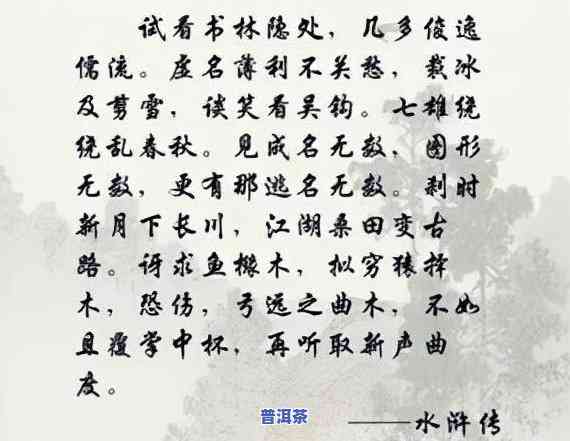 试看书林隐处，几多俊逸
儒流。虚名薄利不关愁，裁冰
及剪雪，谈笑看吴钩。七雄绕
绕乱春秋。见成名无数，图形
无数，更有那逃名无数。刹时
新月下长川，江湖桑田变古
路。讶求鱼橼木，拟穷猿择
木，恐伤，弓远之曲木，不如
且覆掌中杯，再听取新声曲
度。
普洱茶
——水浒传